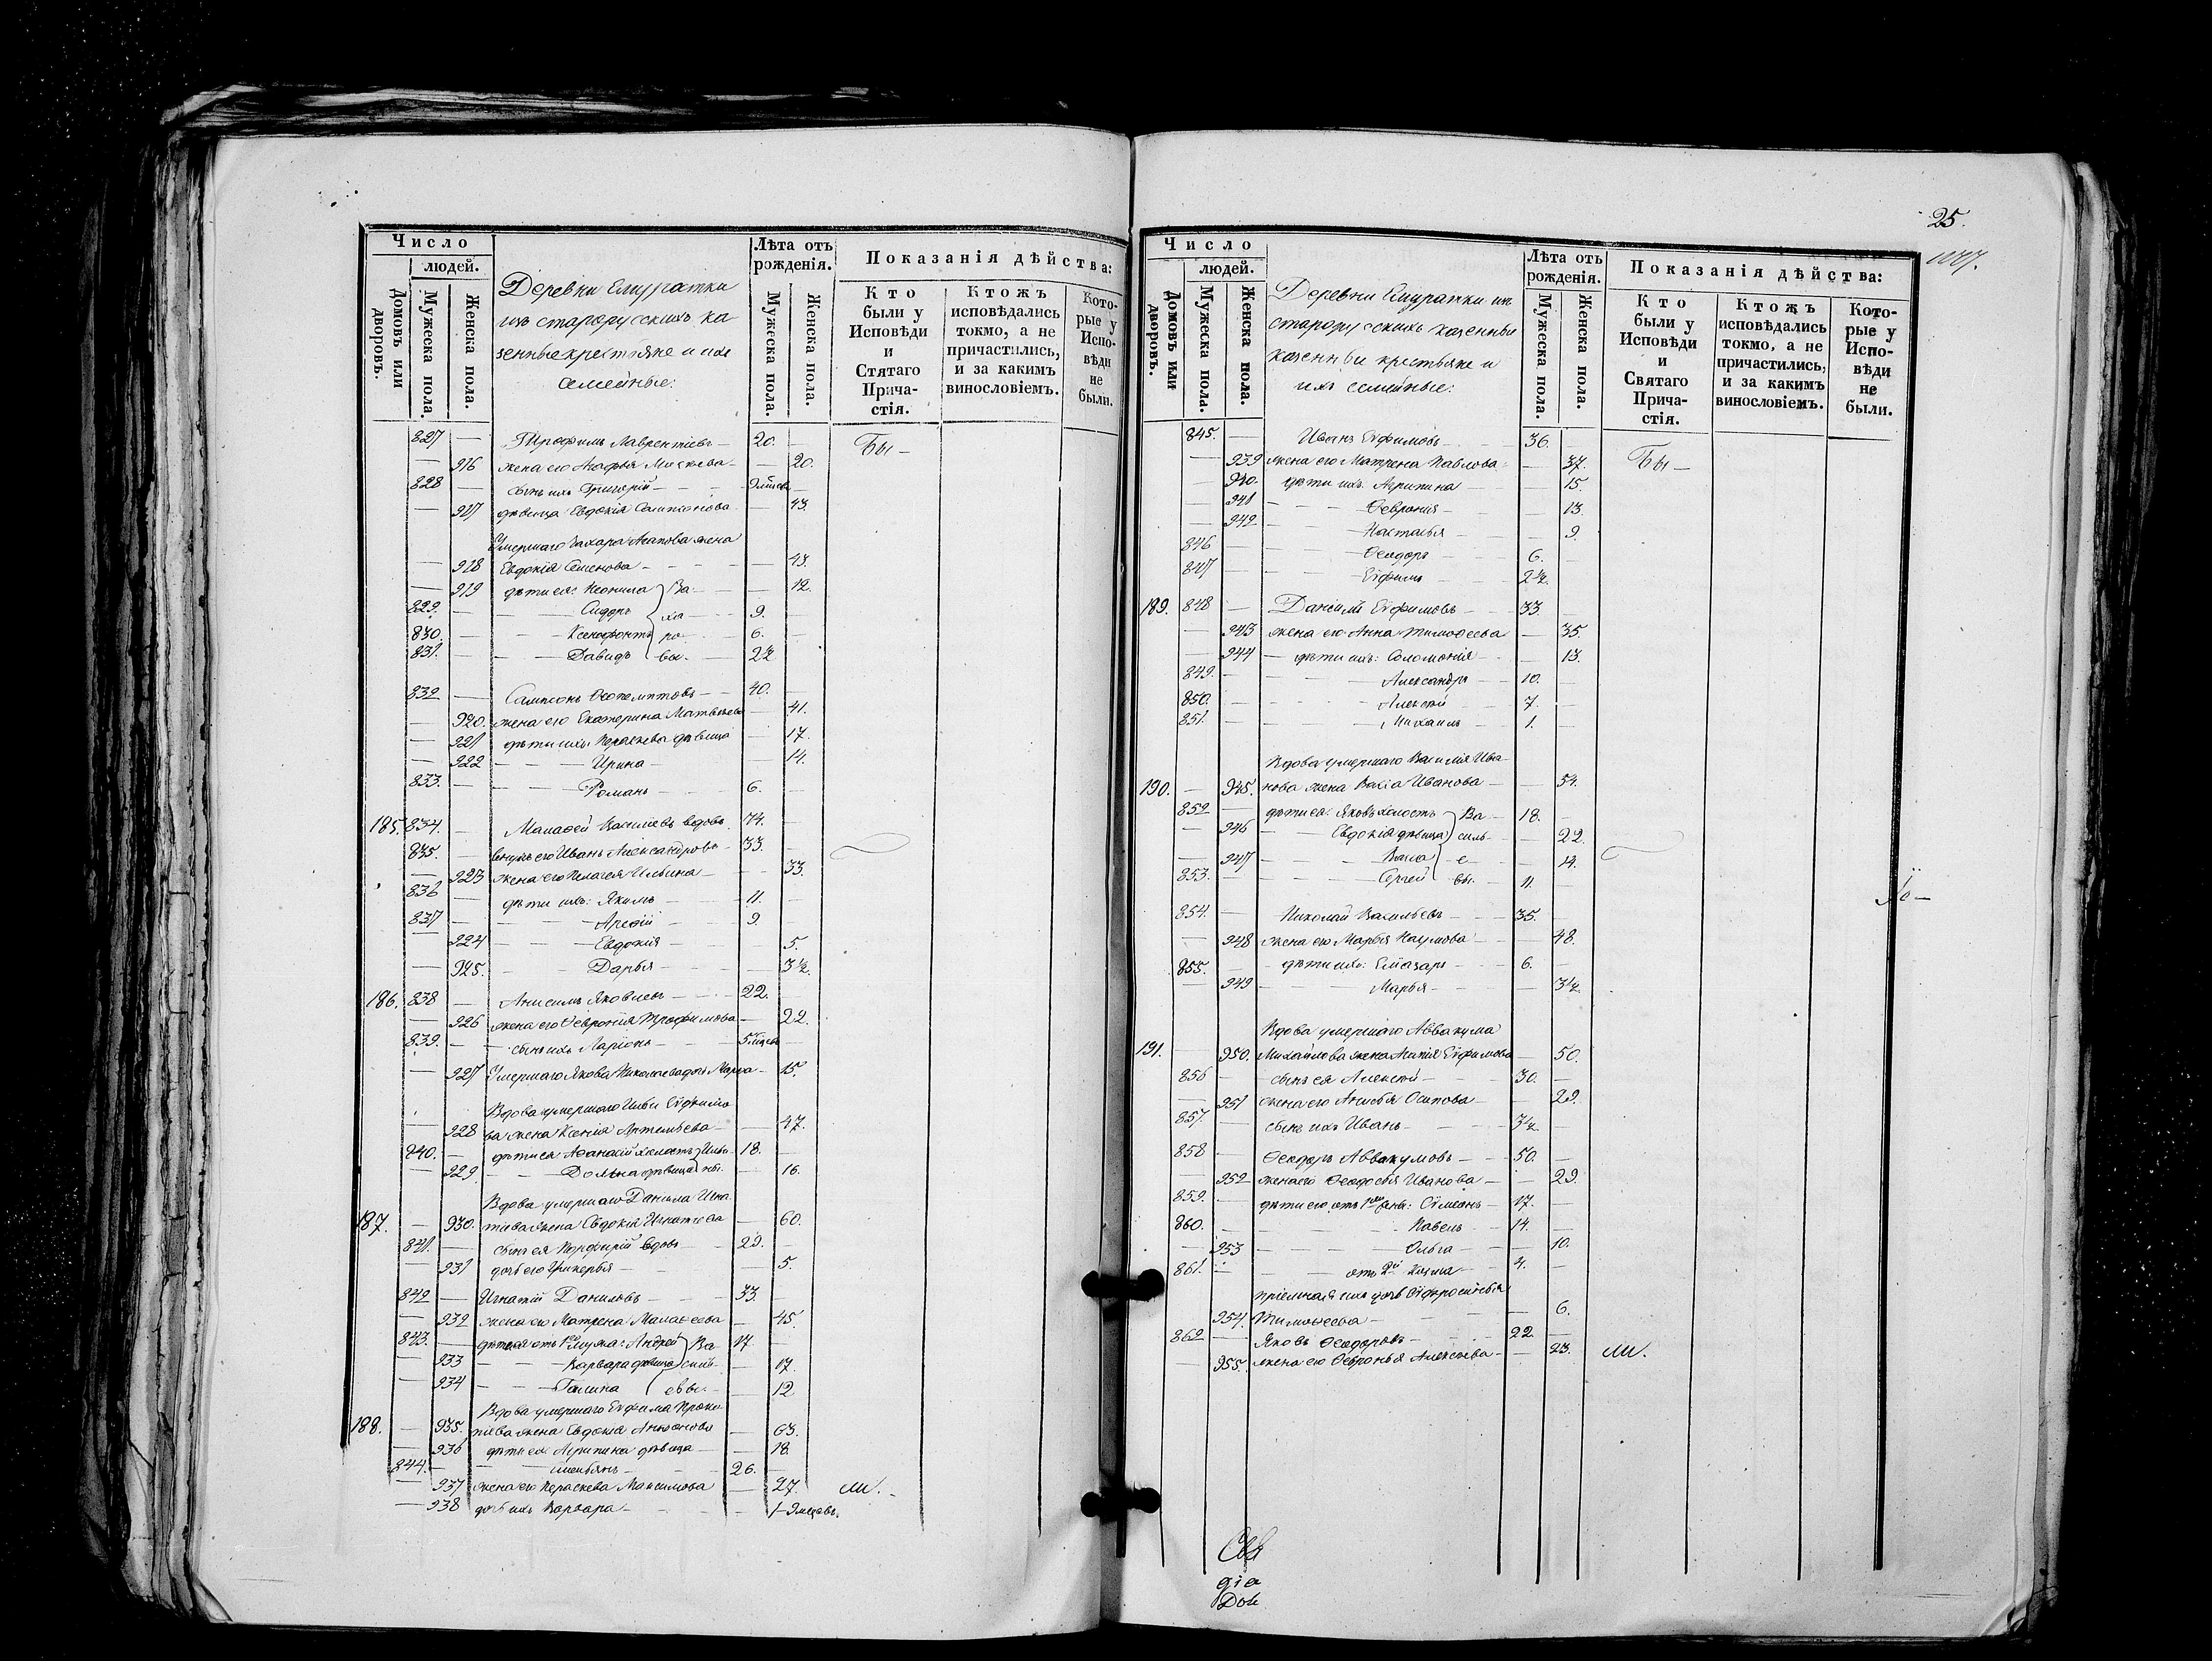 Число
людей.
Домовъ или дворовъ.
Мужеска пола.
Женска пола.
Деревни Емуратки
изъ старорусскихъ ка
зенные крестьяне и ихъ
семейные:
Лѣта отъ рожденія.
Мужеска пола.
Женска пола.
Показанія дѣйства:
Кто были у Исповѣди и Стятаго Прича-стія.
Ктожъ исповѣдались токмо, а не причастились, и за какимъ винословіемъ.
Кото-рые у Испо-вѣди не были.
827 — Трофимъ Лаврентіевъ — 20. — Бы —
— 916 жена его Агафья — 20.
828 — сынъ ихъ Григорій —
— 917 дѣвица Евдокія Сампсонова — 43.
Умершаго Захара Агапова жена
— 918 Евдокія Семенова — 43.
— 919 дѣти ея: Неонила За — 12.
829. — Сидоръ ха — 9.
830. — Ксенофонтъ ро — 6. —
831. — Давидъ вы. — 2½
832 — Сампсонъ Ѳеопемптовъ — 40. —
— 920. жена его Екатерина Матвѣева — 41.
— 921 дѣти ихъ: Параскева дѣвица — 17.
— 922 — Ирина — 14.
833. — Романъ — 6. —
185. 834. — Малафей Васильевъ вдовъ 74. —
835. — внукъ его Иванъ Александровъ — 33. —
— 923 жена его Пелагея Ильина — 33.
836 — дѣти ихъ: Якимъ — 11. —
837 — Арефій — 9. —
924 — Евдокія — 5.
— 925. — Дарья — 3½.
186. 838 — Анисимъ Яковлевъ — 22. —
— 926 жена его Ѳевронія Трофимова — 22.
839. — сынъ ихъ Ларіонъ —
— 927 Умершаго Якова Николаева дочь Марѳа — 15.
Вдова умершаго Ильи Евфимо
— 928 ва жена Ксенія Артемьева — 47.
840. — дѣти ея: Аѳанасій холостъ Ильи- 18. —
— 929 — Домна дѣвица ны. — 16.
Вдова умершаго Данила Игна
187. — 930. тіева жена Евдокія Игнатіева — 60.
841. — сынъ ея Порфирій вдовъ — 29. —
— 931 дочь его Гликерья — 5.
842 — Игнатій Даниловъ — 33. —
— 932 жена его Матрена Малафеева — 45.
843. — дѣти ея отъ 1го мужа: Андрей Ва 17. —
— 933 — Варвара дѣвица силь — 17.
— 934 — Галина евы. — 12
Вдова умершаго Евфима Проко
188. — 935. піева жена Евдокія Антонова — 63.
— 936 дѣти ея: Агрипина дѣвица — 18.
844. — Емельянъ — 26. —
— 937 жена его Параскева Максимова — 27. ли. —
— 938 дочь ихъ Варвара — 1 — 9 мѣсяцевъ.
25.
Число
людей.
Домовъ или дворовъ.
Мужеска пола.
Женска пола.
Деревни Емуратки изъ
старорусскихъ казенны
казенные крестьяне и
ихъ семейные:
Лѣта отъ рожденія.
Мужеска пола.
Женска пола.
Показанія дѣйства:
Кто были у Исповѣди и Святаго Прича-стія.
Ктожъ исповѣдались токмо, а не причастились, и за какимъ винословіемъ.
Кото-рые у Испо-вѣди не были.
845. — Иванъ Евфимовъ — 36. — Бы —
— 939 жена его Матрена Павлова — 37.
— 940. дѣти ихъ: Агрипина — 15.
— 941 — Ѳевронія — 13.
— 942 — Настасья — 9.
846 — Ѳеодоръ — 6. —
847 — Евфимъ — 2½. —
189. 848 — Данiилъ Евфимовъ — 33. —
— 943 жена его Анна Тимоѳеева — 35.
— 944 — дѣти ихъ: Соломонія — 13.
849. — Александръ — 10. —
850. — Алексѣй — 7. —
851. — Михаилъ — 1. —
Вдова умершаго Василія Ива
190. — 945. нова жена Васса Иванова — 54.
852 — дѣти ея: Яковъ холостъ Ва — 18. —
— 946 — Евдокія дѣвица силь — 22.
— 947 — Васса е — 14.
853. — Сергей вы. — 11. —
854. — Николай Васильевъ — 35. —
— 948 жена его Марья Наумова — 48.
855. — дѣти ихъ: Елиазаръ — 6. —
— 949 — Марья — 3½
Вдова умершаго Аввакума
191. — 950. Михайлова жена Евфимова — 50.
856 — сынъ ея Алексѣй — 30. —
— 951 жена его Анисья Осипова — 29.
857. — сынъ ихъ Иванъ — 3½. —
858 — Ѳеодоръ Аввакумовъ — 50. —
— 952 жена его Ѳеодосья Иванова — 29.
859. — дѣти его отъ 1й жены: Симеонъ — 17. —
860. — Павелъ — 14. —
— 953 — Ольга — 10.
861. — отъ 2й Козма — 4. —
пріемная ихъ дочь Евфросинья
954. Тимоѳеева — 6.
862 — Яковъ Ѳеодоровъ — 22. —
955. жена его Ѳевронья Алексѣева — 23. ли.
Свя
діа
Дья